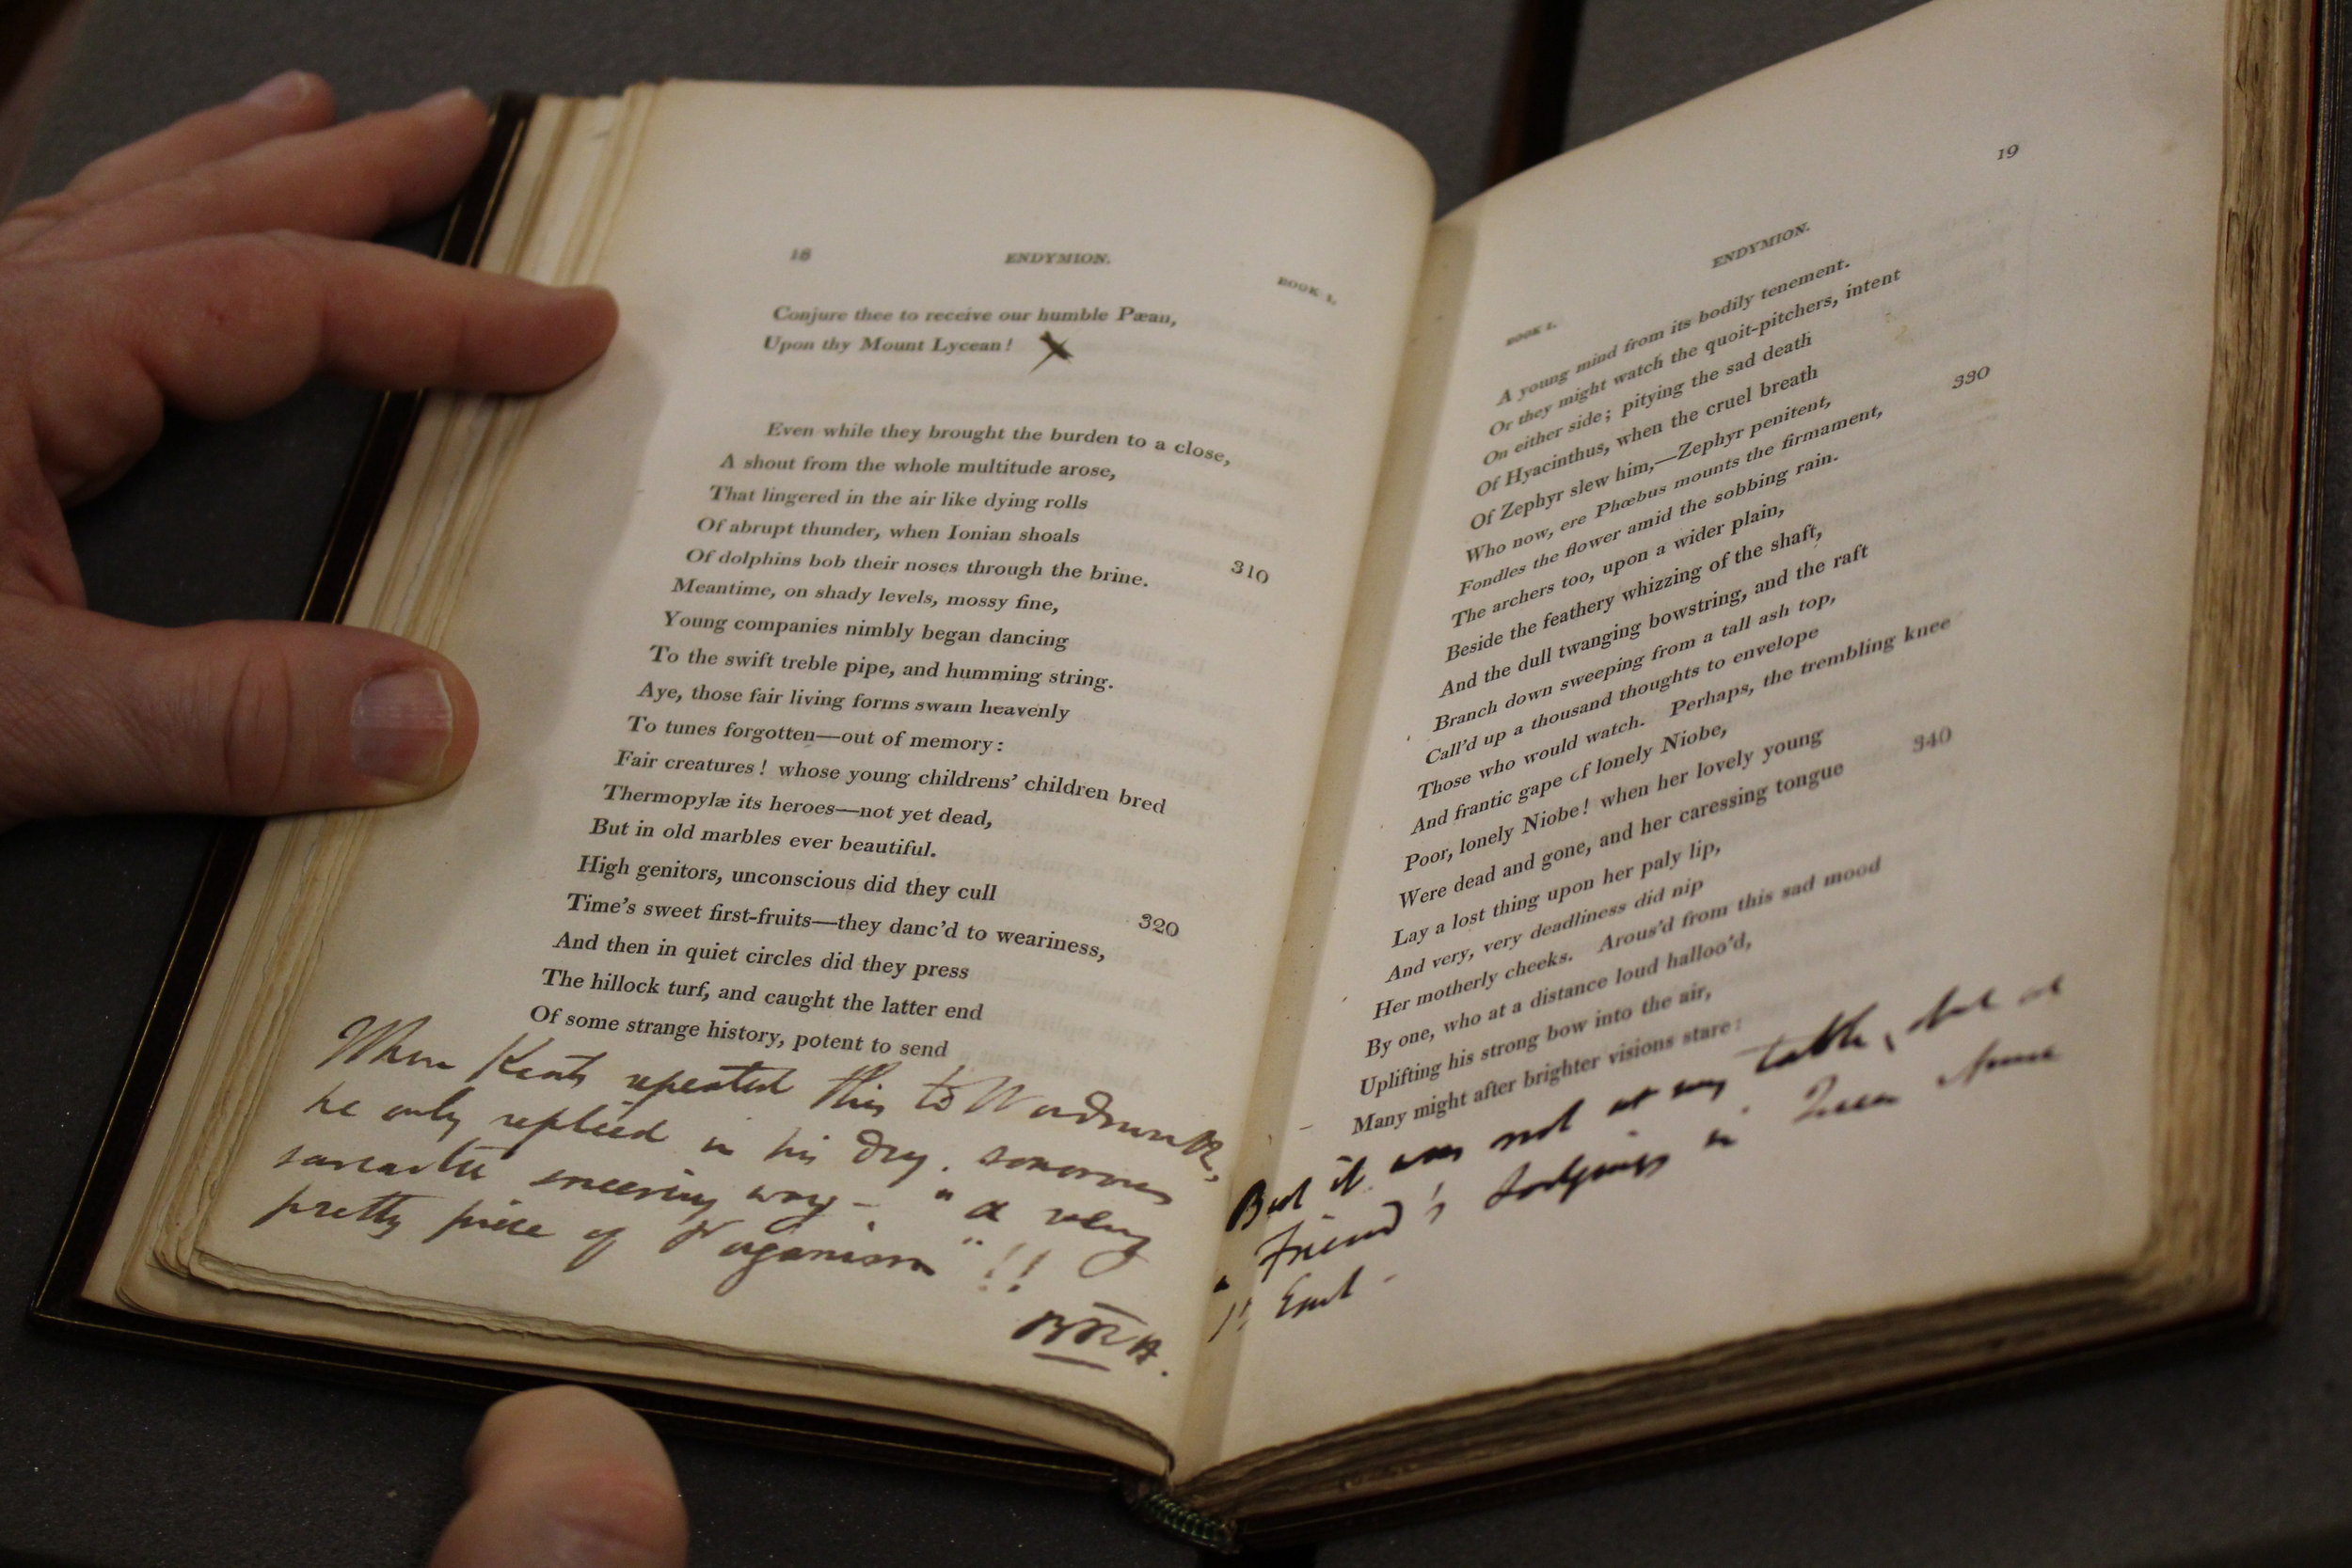 18
ENDYMION.
BOOK I.
Conjure thee to receive our humble Pæan,
Upon thy Mount Lycean!
Even while they brought the burden to a close,
A shout from the whole multitude arose,
That lingered in the air like dying rolls
Of abrupt thunder, when Ionian shoals
Of dolphins bob their noses through the brine. 310
Meantime, on shady levels, mossy fine,
Young companies nimbly began dancing
To the swift treble pipe, and humming string.
Aye, those fair living forms swam heavenly
To tunes forgotten—out of memory:
Fair creatures! whose young childrens' children bred
Thermopylæ its heroes—not yet dead,
But in old marbles ever beautiful.
High genitors, unconscious did they cull
Time's sweet first-fruits—they danc'd to weariness, 320
And then in quiet circles did they press
The hillock turf, and caught the latter end
Of some strange history, potent to send
When Keats repeated this to Wordsworth,
he only replied in his dry. sonorous
sarcastic sneering way— "a very
pretty piece of Paganism"!!
BRH.
19
ENDYMION.
BOOK I.
A young mind from its bodily tenement.
Or they might watch the quoit-pitchers, intent
On either side; pitying the sad death
Of Hyacinthus, when the cruel breath
Of Zephyr slew him,—Zephyr penitent, 330
Who now, ere Phœbus mounts the firmament,
Fondles the flower amid the sobbing rain.
The archers too, upon a wider plain,
Beside the feathery whizzing of the shaft,
And the dull twanging bowstring, and the raft
Branch down sweeping from a tall ash top,
Call'd up a thousand thoughts to envelope
Those who would watch. Perhaps, the trembling knee
And frantic gape of lonely Niobe,
Poor, lonely Niobe! when her lovely young 340
Were dead and gone, and her caressing tongue
Lay a lost thing upon her paly lip,
And very, very deadliness did nip
Her motherly cheeks. Arous'd from this sad mood
By one, who at a distance loud halloo'd,
Uplifting his strong bow into the air,
Many might after brighter visions stare:
But it was not at my table, but at
a Friend's Lodgings in Queen Anne
St East—